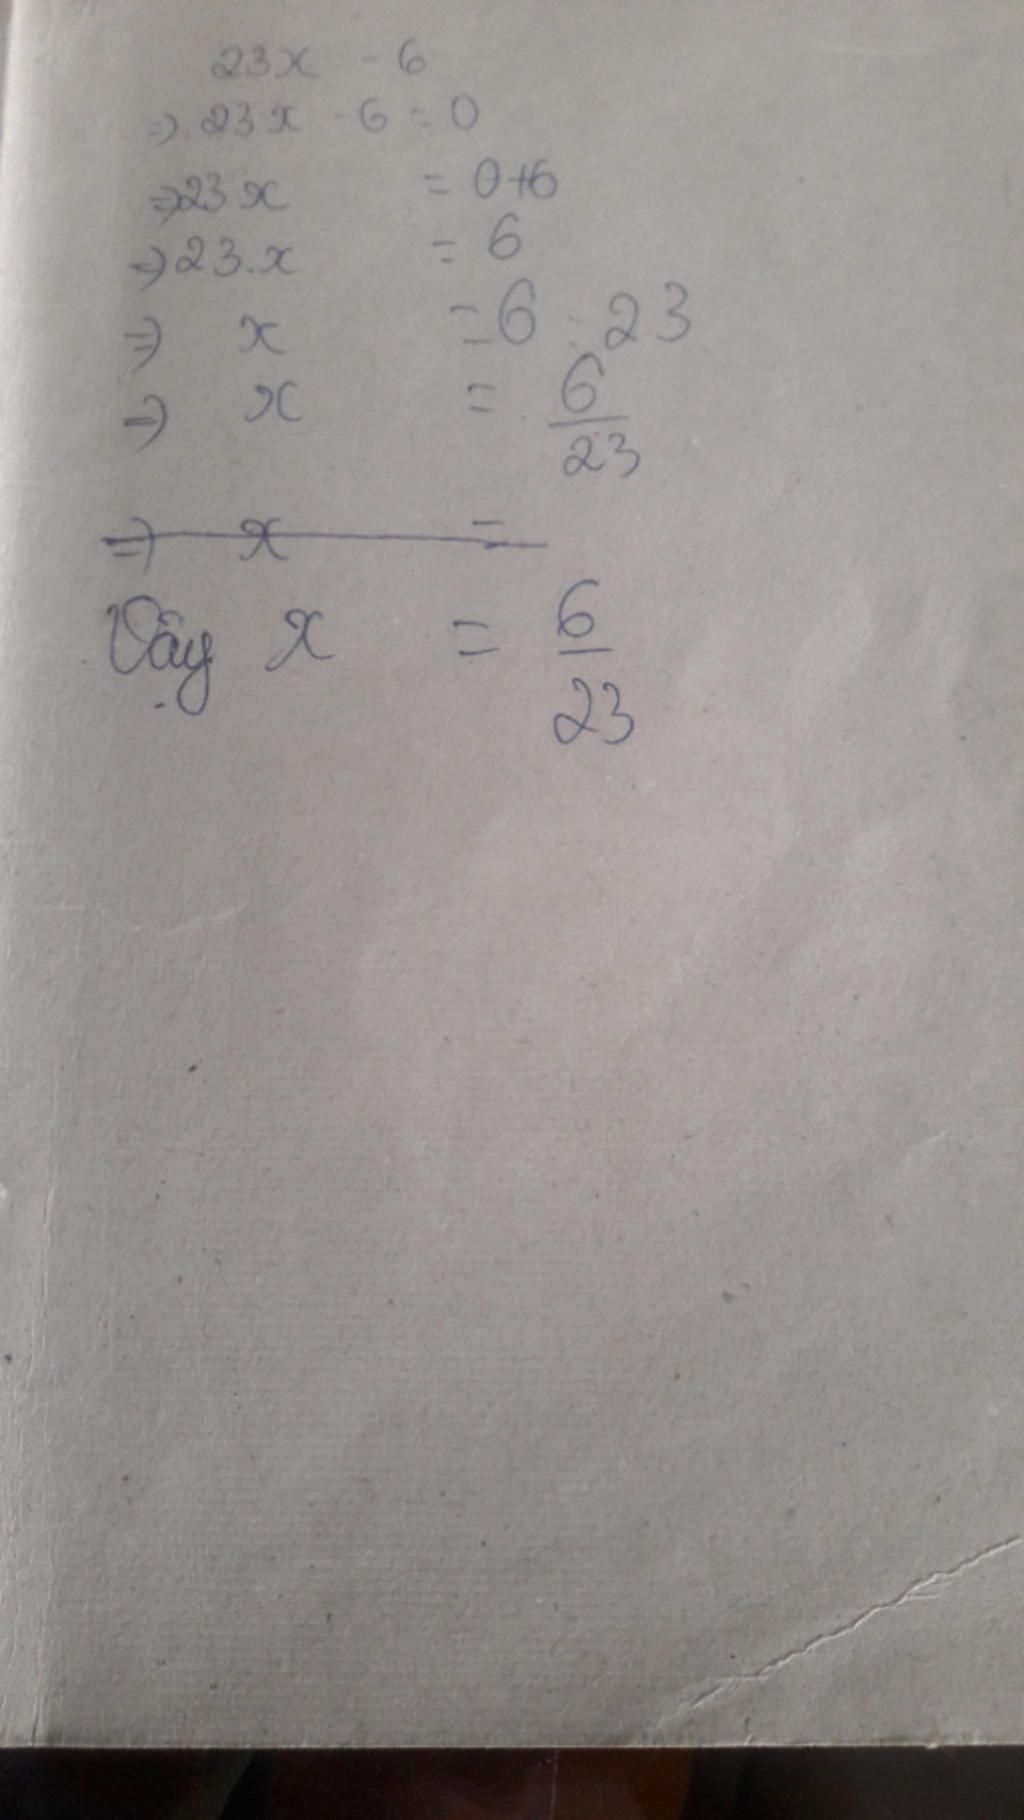 23x - 6
=> 23x - 6 = 0
=> 23x = 0+6
=> 23.x = 6
=> x = 6 : 23
=> x = 6/23
=> x =
Vậy x = 6/23